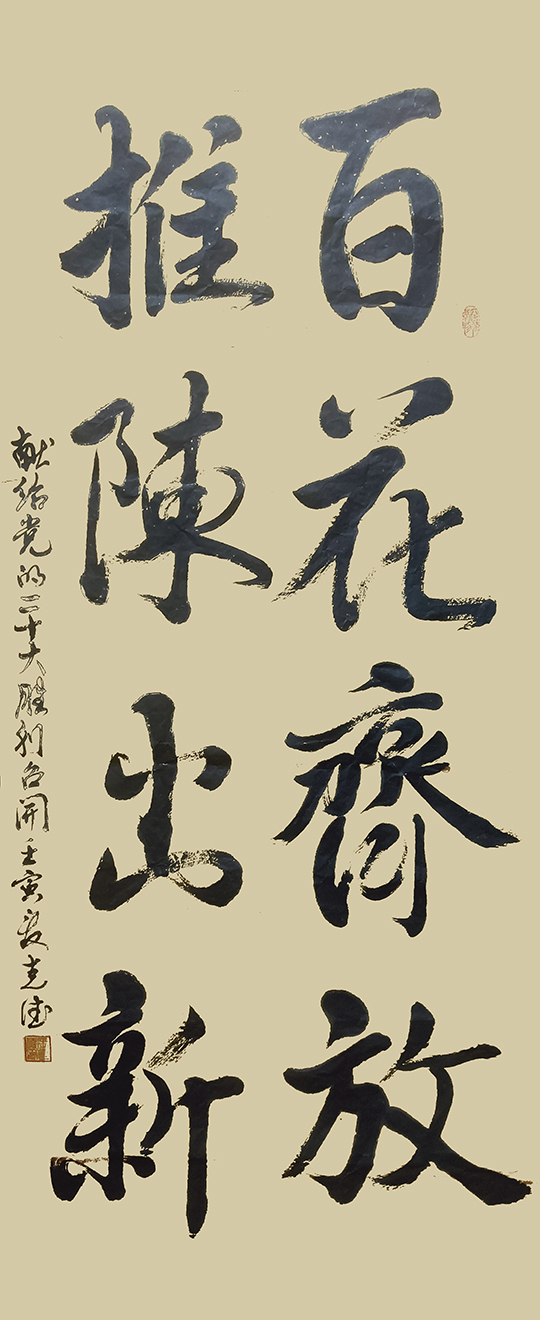 百花齊放
推陳出新
献给党的二十大胜利召开壬寅夏克德